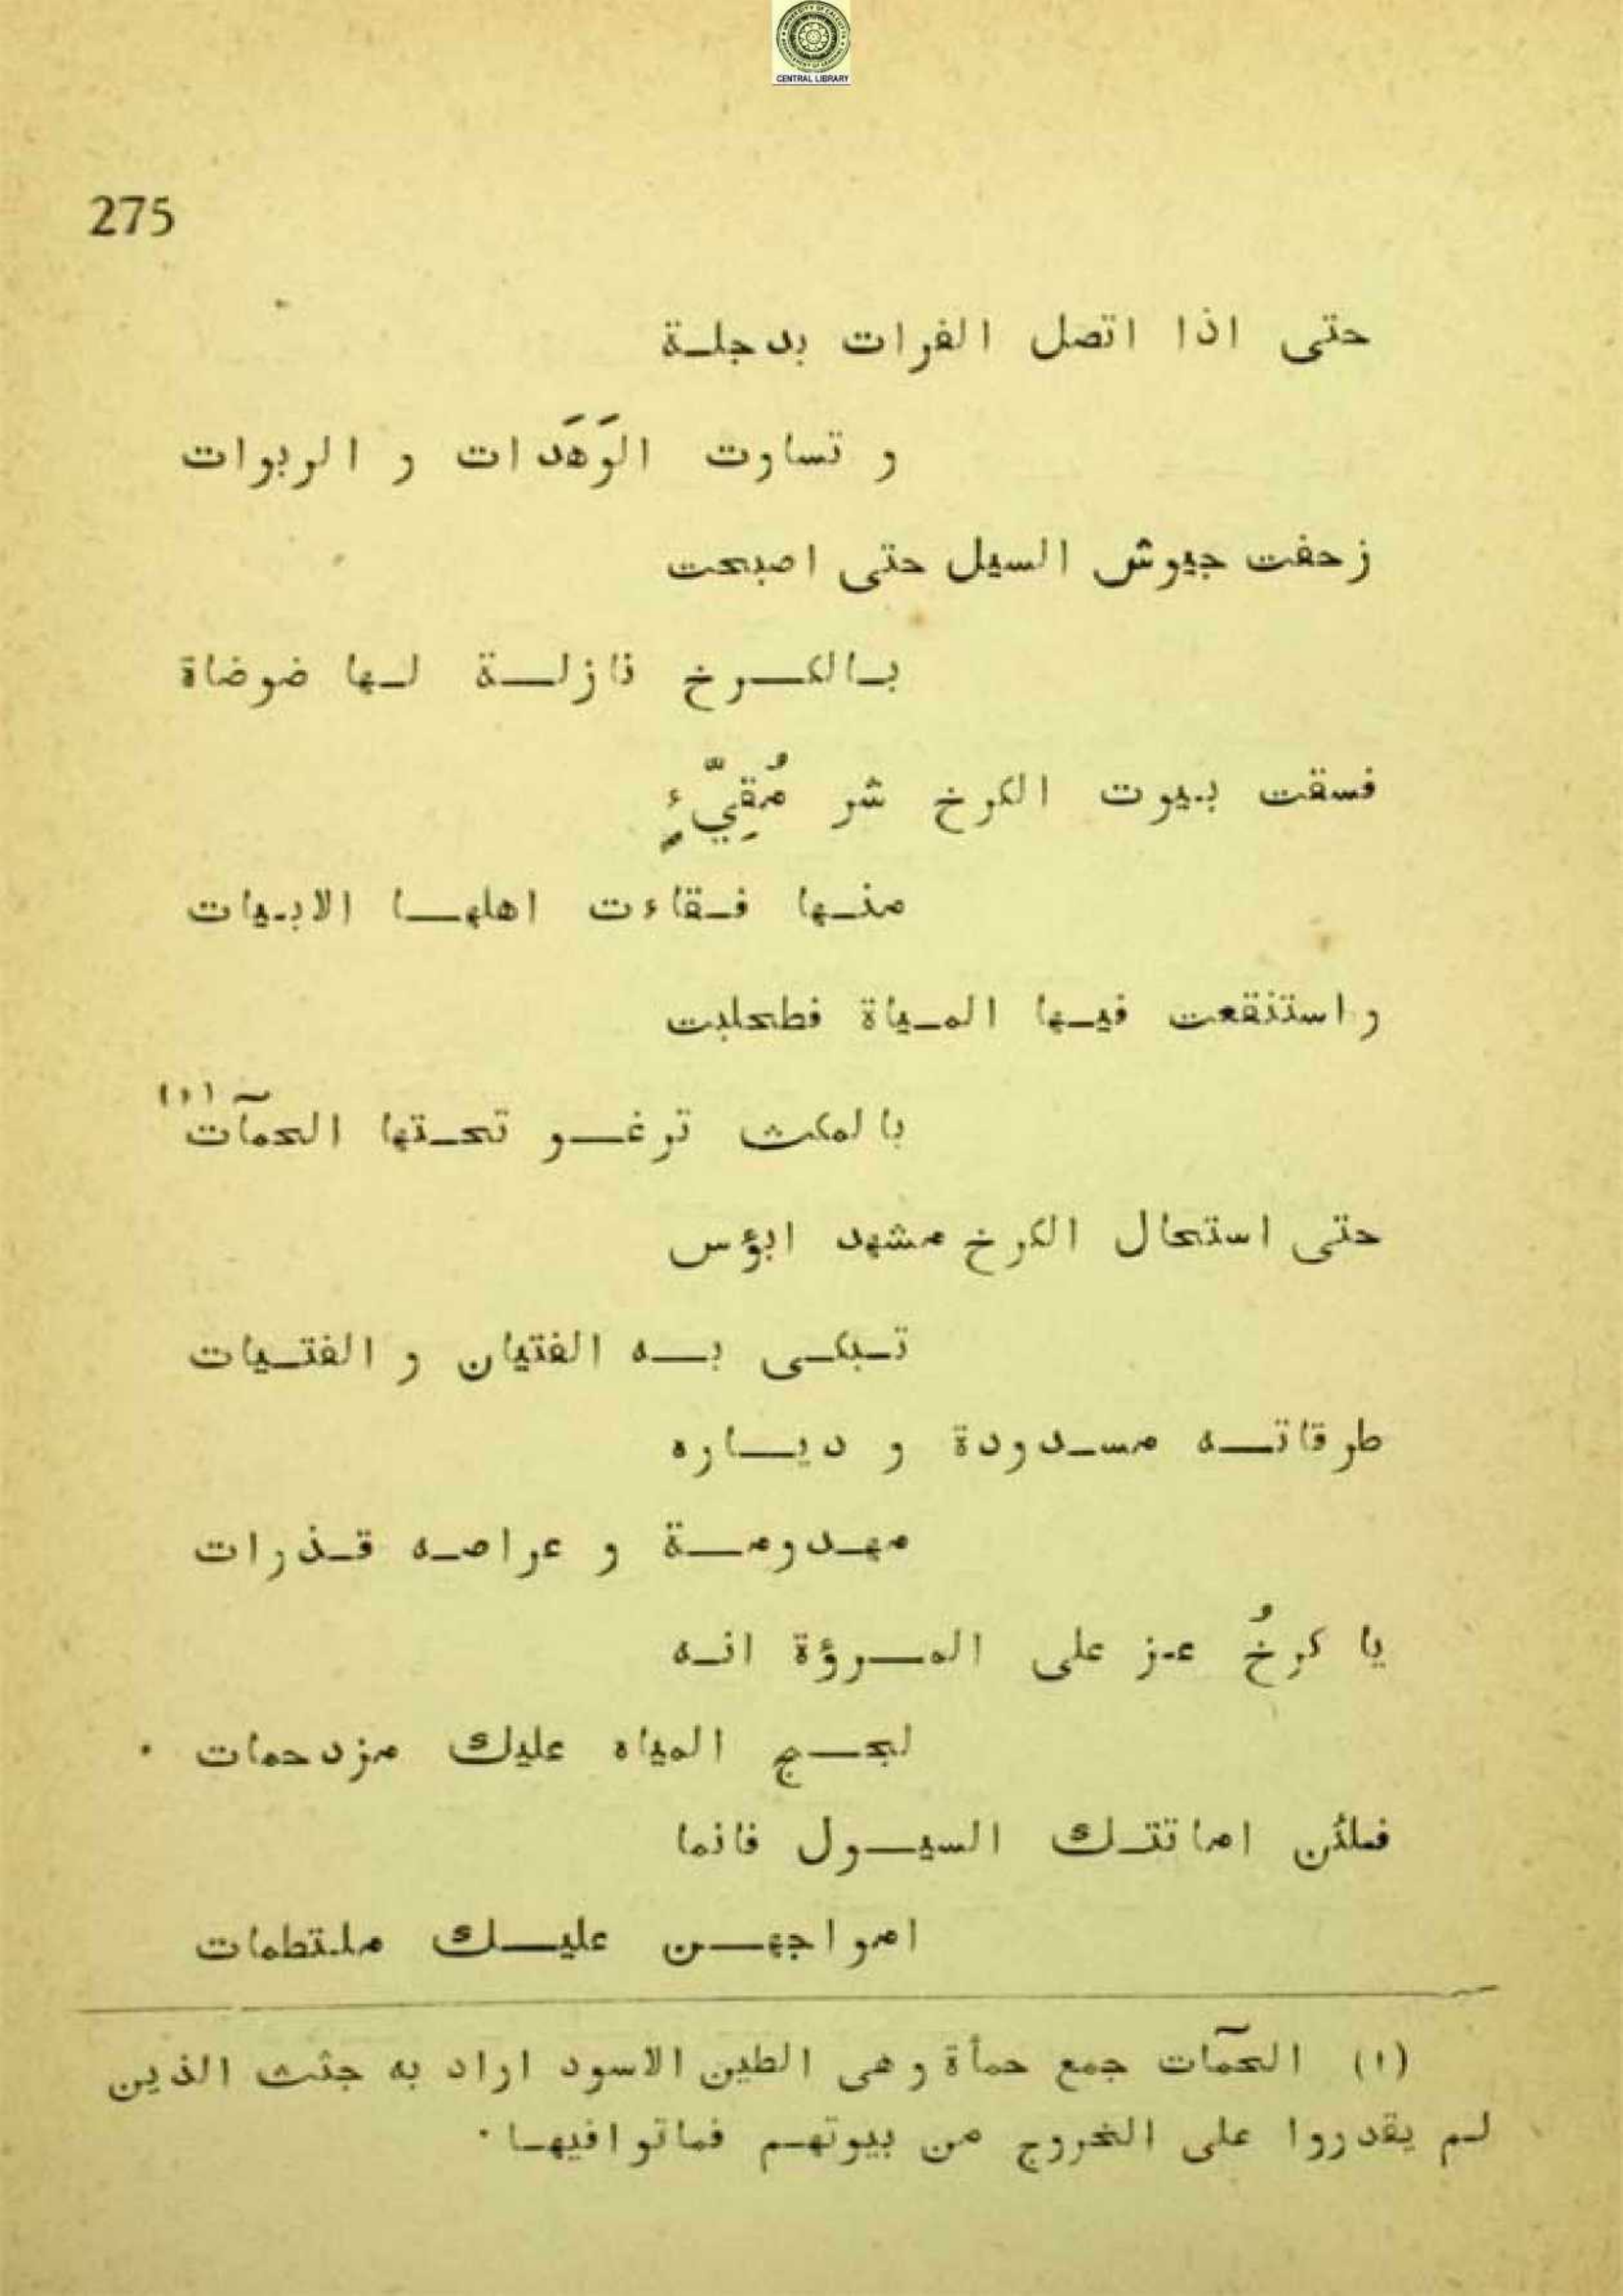 CENTRAL LIBRARY
275
حتى اذا اتصل الفرات بدجلة
و تساوت الوَهَدات و الربوات
زحفت جيوش السيل حتى اصبحت
بالكرخ نازلة لها ضوضاة
فسقت بيوت الكرخ شر مُقِيّءٍ
منها فقاءت اهلها الابيات
و استنقعت فيها المياة فطحلبت
بالمكث ترغو تحتها الحمآت (١)
حتى استحال الكرخ مشهد ابؤس
تبكى به الفتيان و الفتيات
طرقاته مسدودة و دياره
مهدومة و عراصه قذرات
يا كرخُ عز على المرؤة انه
لجج المياه عليك مزدحمات ٠
فلئن اماتتك السيول فانما
امواجهن عليك ملتطمات
(١) الحمآت جمع حمأة و هى الطين الاسود اراد به جثث الذين
لم يقدروا على الخروج من بيوتهم فماتوا فيها ٠